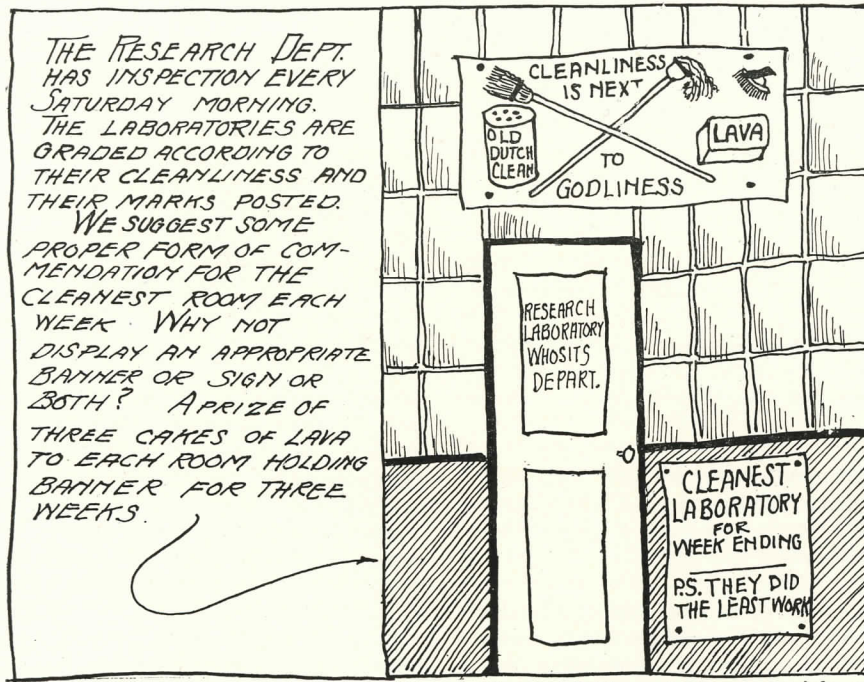 THE RESEARCH DEPT.
HAS INSPECTION EVERY
SATURDAY MORNING.
THE LABORATORIES ARE
GRADED ACCORDING TO
THEIR CLEANLINESS AND
THEIR MARKS POSTED.
WE SUGGEST SOME
PROPER FORM OF COM-
MENDATION FOR THE
CLEANEST ROOM EACH
WEEK WHY NOT
DISPLAY AN APPROPRIATE
BANNER OR SIGN OR
BOTH? A PRIZE OF
THREE CAKES OF LAVA
TO EACH ROOM HOLDING
BANNER FOR THREE
WEEKS.
CLEANLINESS
IS NEXT
TO
GODLINESS
OLD
DUTCH
CLEAN
LAVA
RESEARCH
LABORATORY
WHOSITS
DEPART.
CLEANEST
LABORATORY
FOR
WEEK ENDING
P.S. THEY DID
THE LEAST WORK